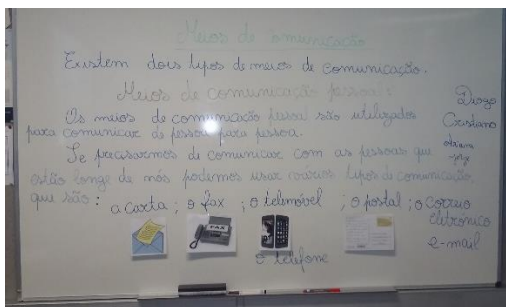 Meios de comunicação
Existem dois tipos de meios de comunicação.
Meios de comunicação pessoal:
Os meios de comunicação pessoal são utilizados
para comunicar de pessoa para pessoa.
Se precisarmos de comunicar com as pessoas que
estão longe de nós podemos usar vários tipos de comunicação,
que são: a carta; o fax; o telemóvel; o postal; o correio
eletrónico
e-mail
o telefone
FAX
Diogo
Cristiano